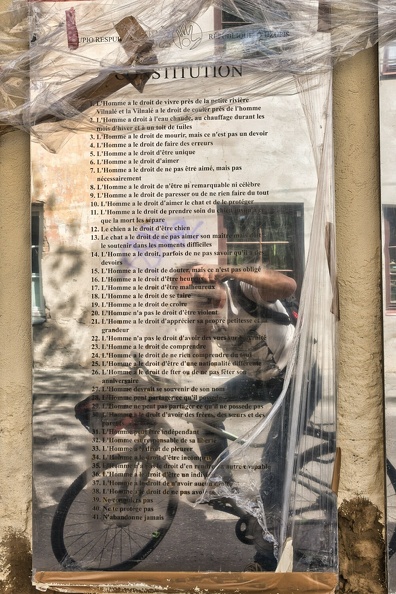 UPIO RESPU
RÉPUBLIQUE
CONSTITUTION
1. L'Homme a le droit de vivre près de la petite rivière
Vilnalé et la Vilnalé a le droit de couler près de l'homme
2. L'Homme a droit à l'eau chaude, au chauffage durant les
mois d'hiver et à un toit de tuiles
3. L'Homme a le droit de mourir, mais ce n'est pas un devoir
4. L'Homme a le droit de faire des erreurs
5. L'Homme a le droit d'être unique
6. L'Homme a le droit d'aimer
7. L'Homme a le droit de ne pas être aimé, mais pas
nécessairement
8. L'Homme a le droit de n'être ni remarquable ni célèbre
9. L'Homme a le droit de paresser ou de ne rien faire du tout
10. L'Homme a le droit d'aimer le chat et de le protéger
11. L'Homme a le droit de prendre soin du
que la mort les sépare
12. Le chien a le droit d'être chien
13. Le chat a le droit de ne pas aimer son maître
le soutenir dans les moments difficiles
14. L'Homme a le droit, parfois de ne pas savoir qu'il a des
devoirs
15. L'Homme a le droit de douter, mais ce n'est pas obligé
16. L'Homme a le droit d'être heureux
17. L'Homme a le droit d'être malheureux
18. L'Homme a le droit de se taire
19. L'Homme a le droit de croire
20. L'Homme n'a pas le droit d'être violent
21. L'Homme a le droit d'apprécier sa propre petitesse et sa
grandeur
22. L'Homme n'a pas le droit d'avoir des vues sur l'éternité
23. L'Homme a le droit de comprendre
24. L'Homme a le droit de ne rien comprendre du tout
25. L'Homme a le droit d'être d'une nationalité différente
26. L'Homme a le droit de fêter ou de ne pas fêter son
anniversaire
27. L'Homme devrait se souvenir de son nom
28. L'Homme peut partager ce qu'il possède
29. L'Homme ne peut pas partager ce qu'il ne possède pas
30. L'Homme a le droit d'avoir des frères, des sœurs et des
31. L'Homme peut être indépendant
32. L'Homme est responsable de sa liberté
33. L'Homme a le droit de pleurer
34. L'Homme a le droit d'être incompris
35. L'Homme n'a pas le droit d'en rendre un autre coupable
36. L'Homme a le droit d'être un individu
37. L'Homme a le droit de n'avoir aucun
38. L'Homme a le droit de ne pas avoir
39. Ne conquiers pas
40. Ne te protège pas
41. N'abandonne jamais